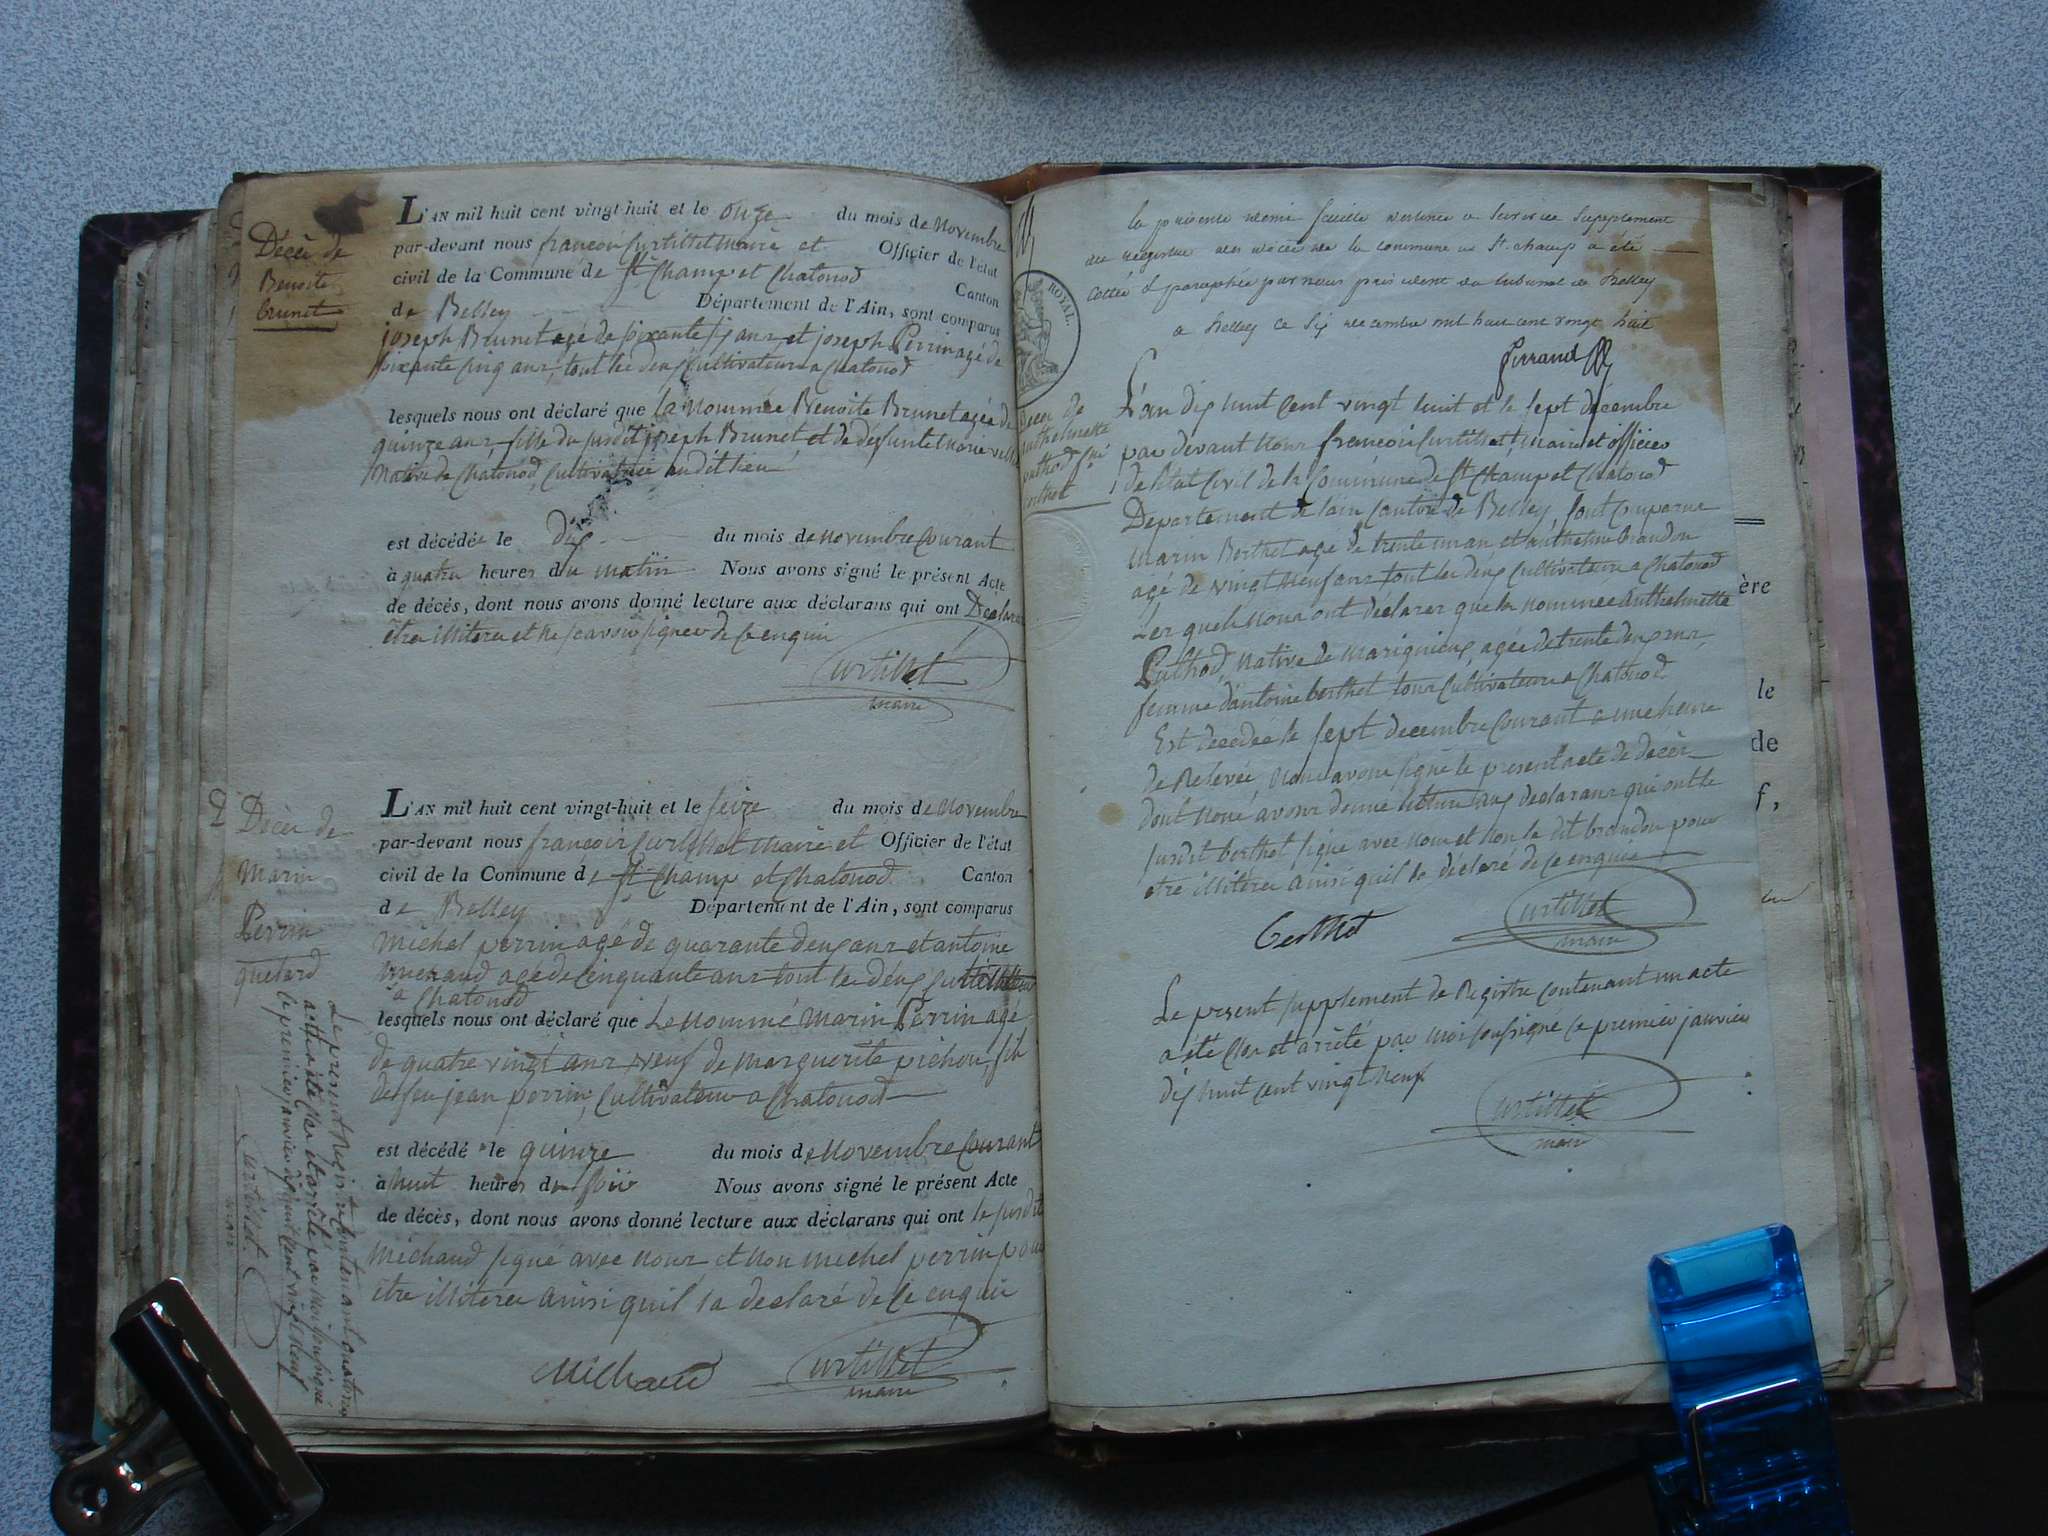 Décès de
Benoite
brunet
L'AN mil huit cent vingt-huit et le onze du mois de Novembre
par-devant nous françois Curtillet maire et Officier de l'état
civil de la Commune de St Champ et Chatonod Canton
de Belley Département de l'Ain, sont comparus
joseph Brunet agé de soixante six ans et joseph Perrin agé de
soixante cinq ans, tout les deux Cultivateurs a Chatonod
lesquels nous ont déclaré que la nommée Benoite Brunet agée de
quinze ans, fille du susdit joseph Brunet, et de défunte Marie
Native de Chatonod, Cultivatrice audit lieu
est décédée le dix du mois de novembre Courant
à quatre heures du matin Nous avons signé le présent Acte
de décès, dont nous avons donné lecture aux déclarans qui ont Déclaré
être illiterer et ne scavoir signer de ce enquir
Curtillet
maire
2
Décès de
Marin
Perrin
L'AN mil huit cent vingt-huit et le seize du mois de Novembre
par-devant nous françois Curtillet maire et Officier de l'état
civil de la Commune de St Champ et Chatonod Canton
de Belley Département de l'Ain, sont comparus
Michel perrin agé de quarante deux ans et antoine
Michaud agé de cinquante ans tout les deux
a Chatonod
lesquels nous ont déclaré que Le nommé Marin Perrin agé
de quatre vingt ans veuf de Marguerite pichon, fils
de feu jean perrin, Cultivateur a Chatonod
est décédé le quinze du mois de Novembre Courant
à huit heures du soir Nous avons signé le présent Acte
de décès, dont nous avons donné lecture aux déclarans qui ont le susdit
Michaud signé avec nous et non michel perrin pour
être illiterer ainsi quil la declaré de ce enquir
Michaud
Curtillet
maire
Le present Registre Contenant quatorze
acte a été clos et arrêté par moi soussigné
le premier janvier dix huit cent vingt neuf
Curtillet
maire
la présente demie feuille destinée a servir de supplement
au registre des décès de la commune de St. champ a été
cottée & paraphée par nous president du tribunal de Belley
a Belley ce six decembre mil huit cent vingt huit
ferrand
ROYAL.
Décès de
anthelmette
puthod
berthet
L'an dix huit Cent vingt huit et le sept décembre
par devant nous françois Curtillet, Maire et officier
de l'état Civil de la Commune de St Champ et Chatonod
Departement de l'ain Canton de Belley, sont Comparue
Marin Berthet agé de trente un an, et anthelme brandon
agé de vingt neuf ans tout les deux Cultivateur a Chatonod
Les quels nous ont déclarer que la nommée anthelmette
Puthod, Native de Marignieux, agée de trente deux ans,
femme d'antoine berthet tous Cultivateurs a Chatonod
Est decedée le sept decembre Courant a une heure
de Relevée, Nous avons signé le present acte de décès
dont nous avons donné lecture aux declarans qui ont le
susdit berthet signé avec nous et non le dit brandon pour
etre illiterer ainsi quil la déclaré de ce enquir
Berthet
Curtillet
maire
Le present supplement de Registre Contenant un acte
a été Clos et arrêté par moi soussigné ce premier janvier
dix huit cent vingt neuf
Curtillet
maire
ère
le
de
f,